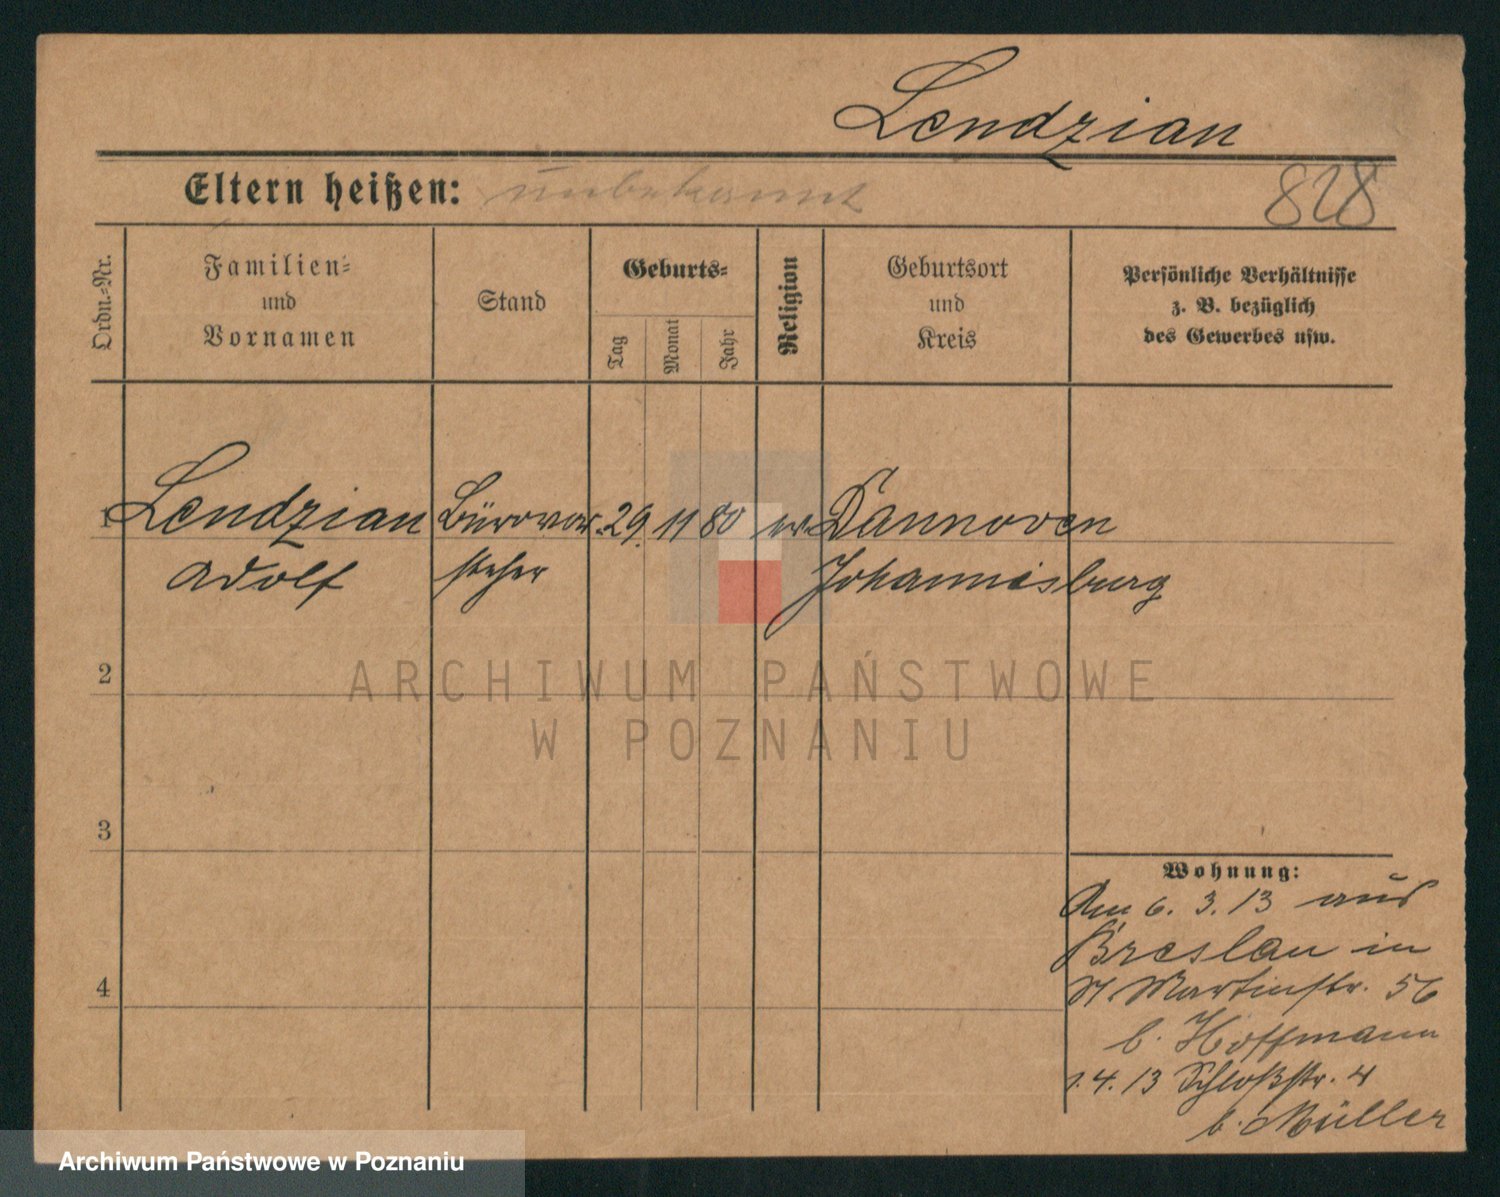 Lendzian
Eltern heißen: unbekannt
828
Ordn.-Nr.
Familien-
und
Vornamen
Stand
Geburts-
Tag
Monat
Jahr
Religion
Geburtsort
und
Kreis
Persönliche Verhältnisse
z. B. bezüglich
des Gewerbes usw.
1 Lendzian Bürovor- 29. 11 80 ev. Dannoven
Adolf steher Johannisburg
2
3
4
Wohnung:
Am 6. 3. 13 aus
Breslau in
St Martinstr. 56
b. Hoffmann
1. 4. 13 Schloßstr. 4
b. Müller
ARCHIWUM PAŃSTWOWE
W POZNANIU
Archiwum Państwowe w Poznaniu